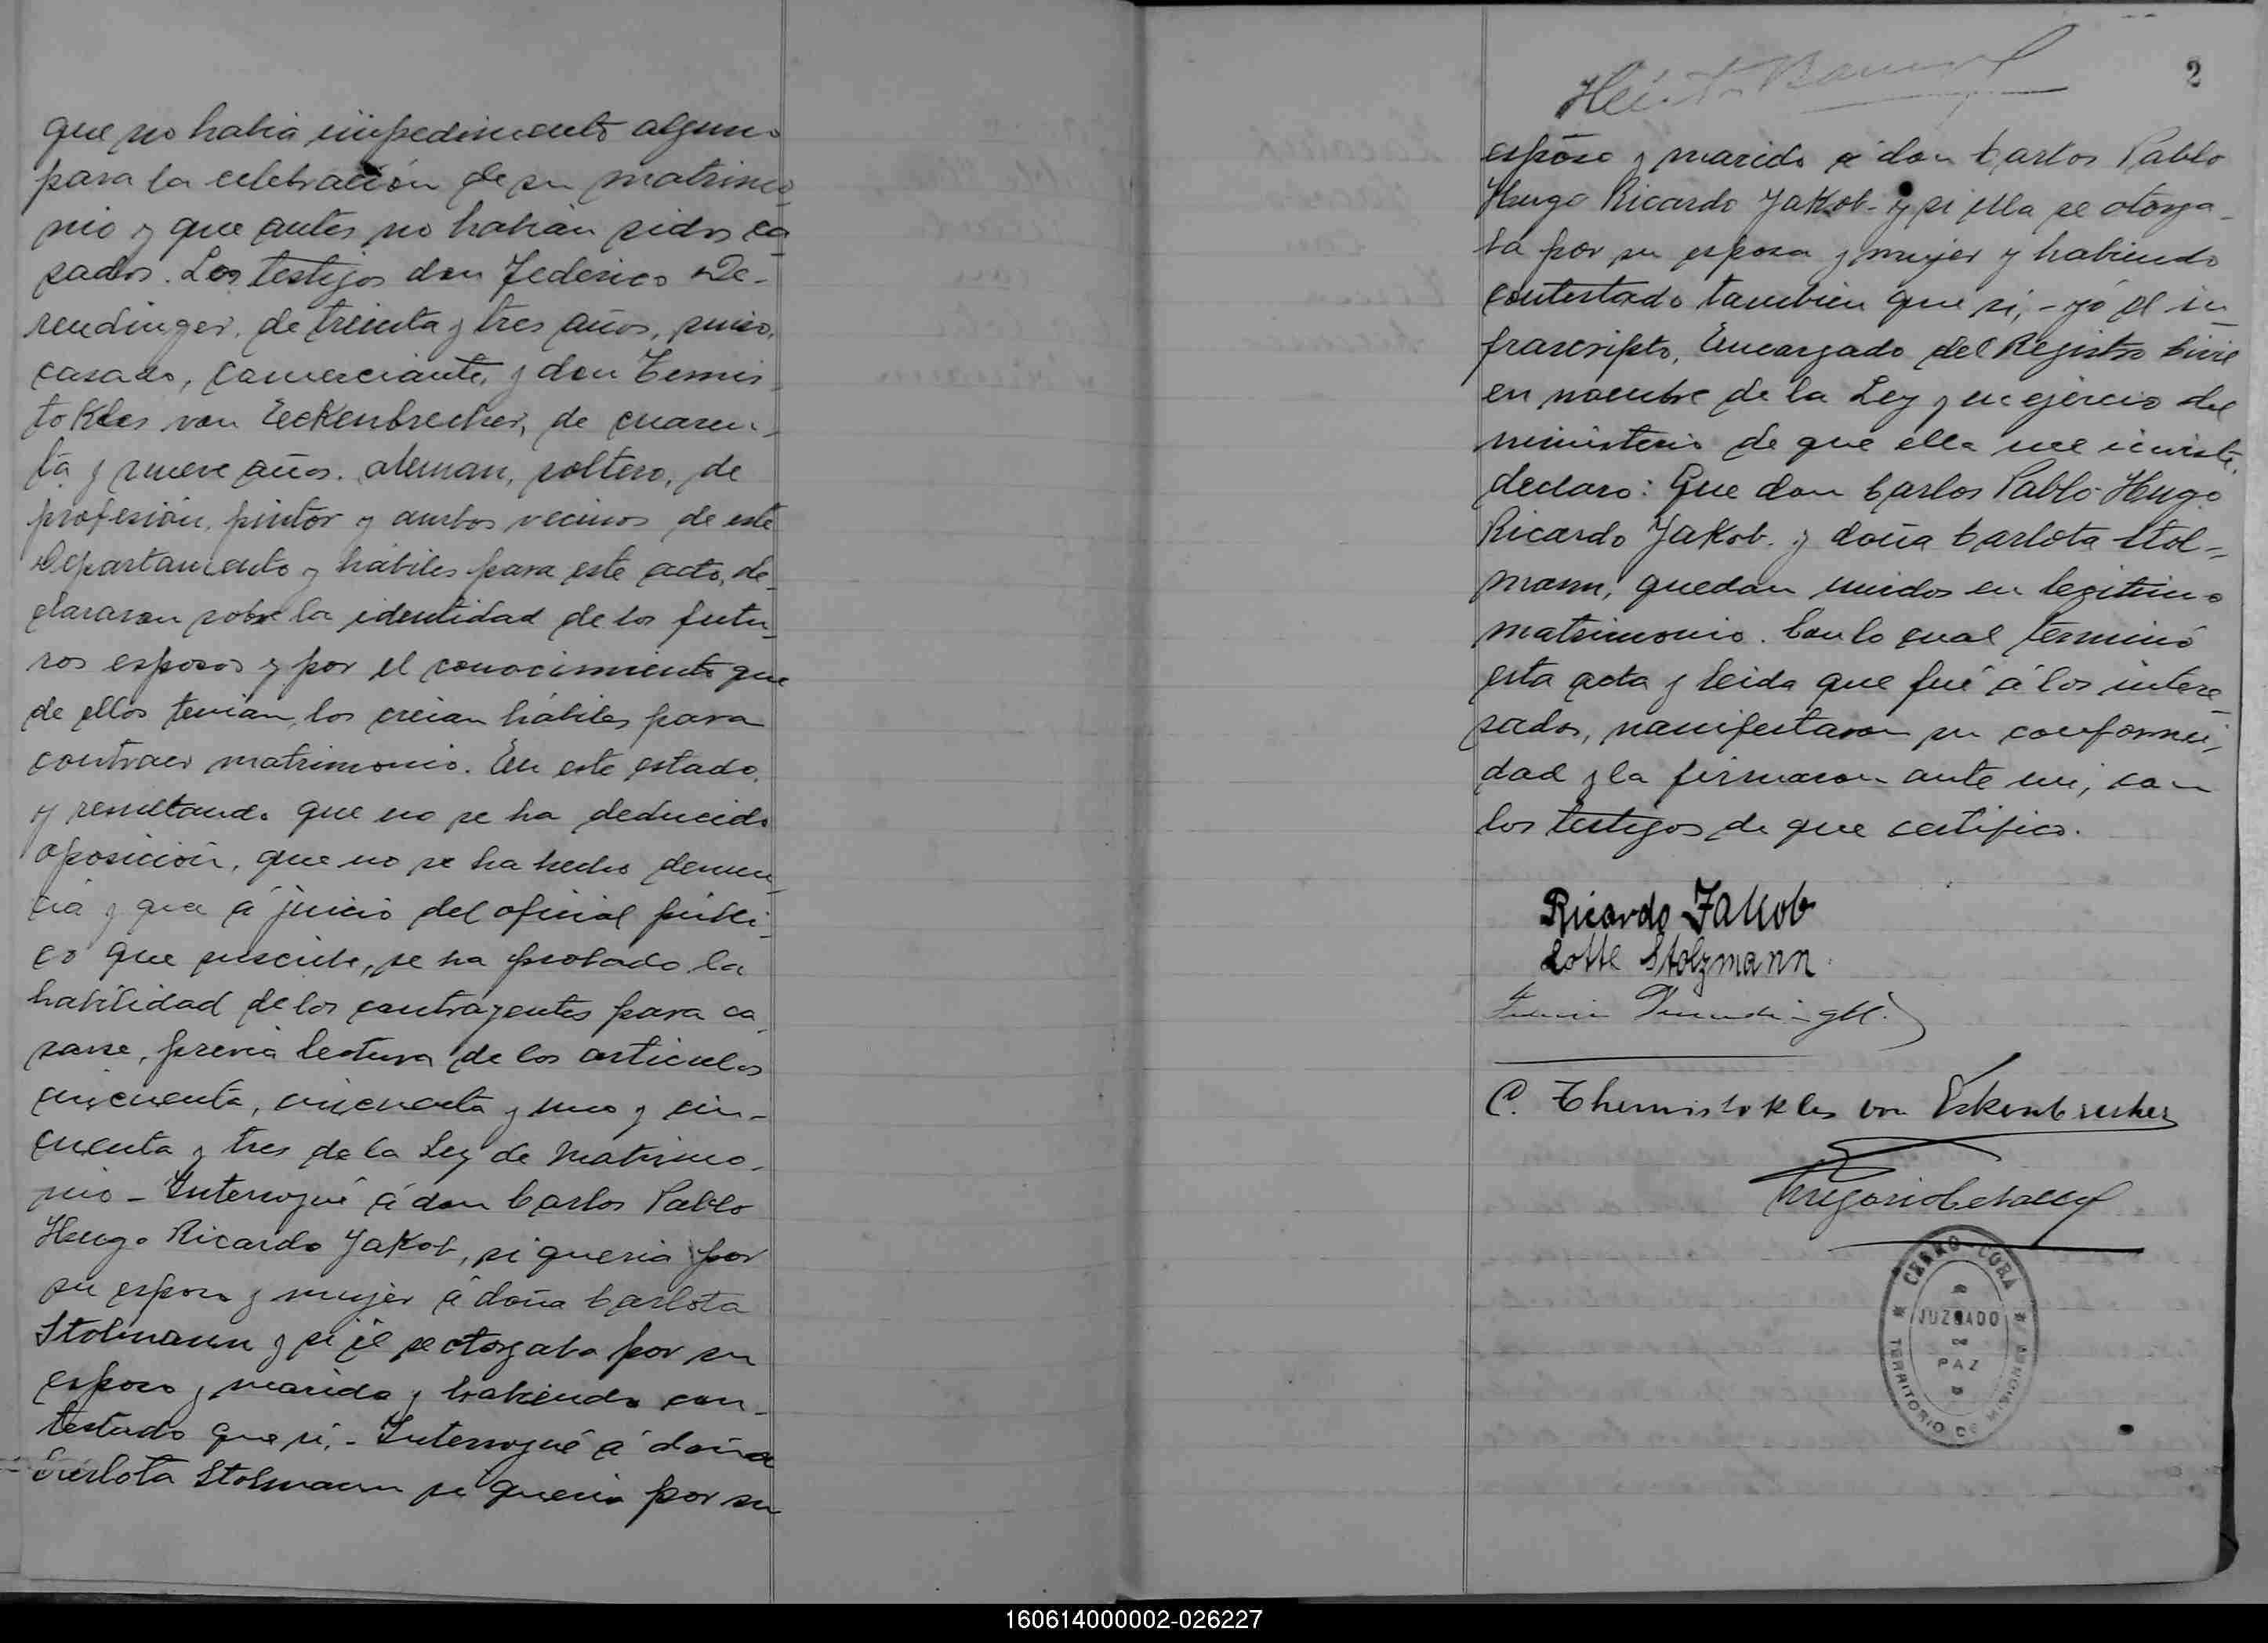 que no habia impedimento alguno
para la celebración de su matrimo-
nio y que antes no habian sidos ca-
sados. Los testigos don Federico De-
rendinger, de treinta y tres años, suizo,
casado, comerciante, y don Temis-
tokles von Eckenbrecher, de cuaren-
ta y nueve años. aleman, soltero, de
profesión, pintor y ambos vecinos de este
Departamento y hábiles para este acto, de-
clararon sobre la identidad de los futu-
ros esposos y por el conocimiento que
de ellos tenian, los creian hábiles para
contraer matrimonio. En este estado,
y resultando que no se ha deducido
oposición, que no se ha hecho denun-
cia y que á juicio del oficial públi-
co que suscribe, se ha probado la
habilidad de los contrayentes para ca-
sarse, previa lectura de los articulos
cincuenta, cincuenta y uno y cin-
cuenta y tres de la Ley de Matrimo-
nio - Interrogué á don Carlos Pablo
Hugo Ricardo Jakob, si queria por
su esposa y mujer á doña Carlota
Stolmann y si él se otorgaba por su
esposo y marido y habiendo con-
testado que si, - Interrogué á doña
Carlota Stolmann si queria por su
2
Héctor
esposo y marido á don Carlos Pablo
Hugo Ricardo Jakob - y si ella se otorga-
ba por su esposa y mujer y habiendo
contestado tambien que si, - yó el in-
frascripto, Encargado del Registro Civil
en nombre de la Ley y en ejercio del
ministerio de que ella me inviste,
declaro: Que don Carlos Pablo Hugo
Ricardo Jakob. y doña Carlota Stol-
mann, quedan unidos en legitimo
matrimonio. Con lo cual terminó
esta acta y leida que fué á los intere-
sados, manifestaron su conformi-
dad y la firmaron ante mi, con
los testigos de que certifico.
Ricardo Jakob
Lotte Stolzmann
C. Themistokles von Eckenbrecher
CERRO-CORÁ
JUZGADO
DE
PAZ
TERRITORIO DE MISIONES
160614000002-026227